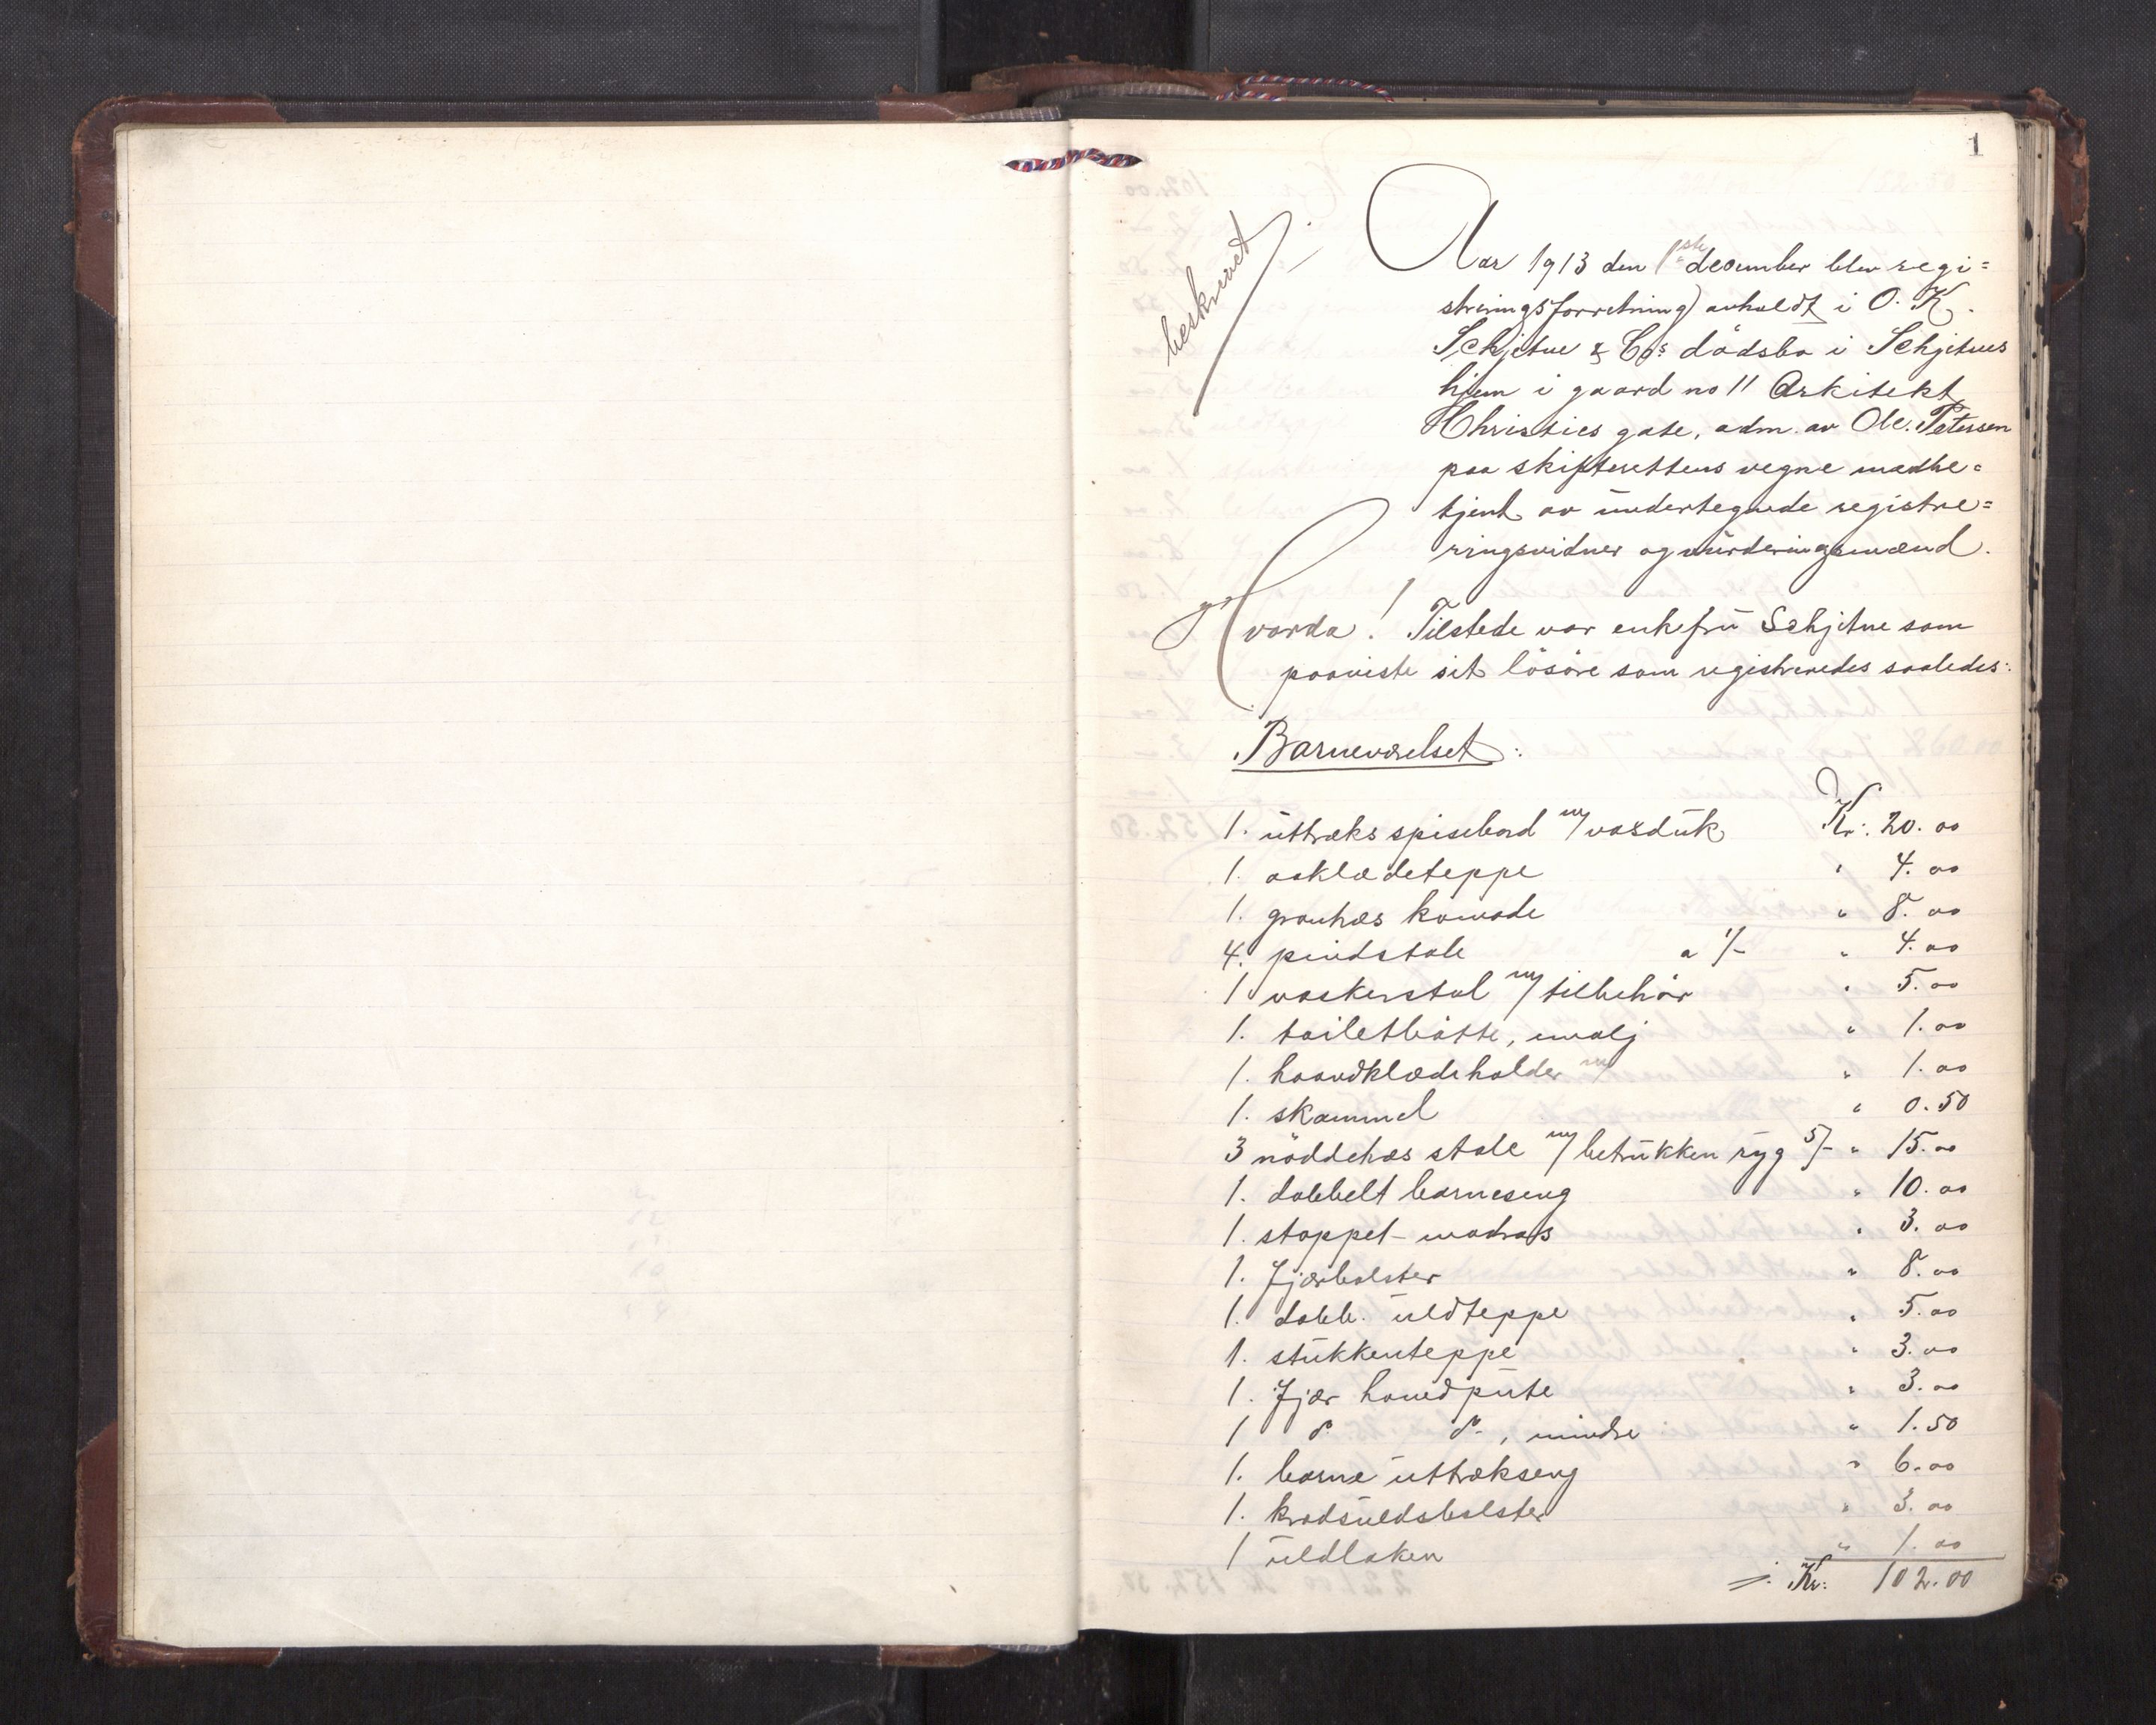 1
beskrevet
Aar 1913 den 1ste december blev regi=
streringsforretning avholdt i O. K.
Schjetne & Co's dödsbo i Schjetnes
hjem i gaard no 11 Arkitekt
Christies gate, adm. av Ole. Petersen
paa skifterettens vegne medbe=
tjent av undertegnede registre=
ringsvidner og vurderingsmænd.
Hvorda! Tilstede var enkefru Schjetne som
paaviste sit lösöre som registreredes saaledes:
Barneværelset:
1. uttræks spisebord m/ voxduk Kr: 20.00
1. askladeteppe " 4.00
1. granhæs komode " 8.00
4. pindstole a 1/- " 4.00
1 vaskerstol m/ tilbehör " 5.00
1. toiletbötte, emalj " 1.00
1. haandklædeholder " 1.00
1. skammel " 0.50
3 nöddehæs stole m/ betrukken ryg 5/- " 15.00
1. dobbelt barneseng " 10.00
1. stoppet madras " 3.00
1. Fjærbolster " 8.00
1. dobb. uldteppe " 5.00
1. stukkenteppe " 3.00
1. Fjær hovedpute " 3.00
1 do. do., mindre " 1.50
1. barne uttrækseng " 6.00
1. kradsuldsbolster " 3.00
1 uldlaken " 1.00
Kr: 102.00